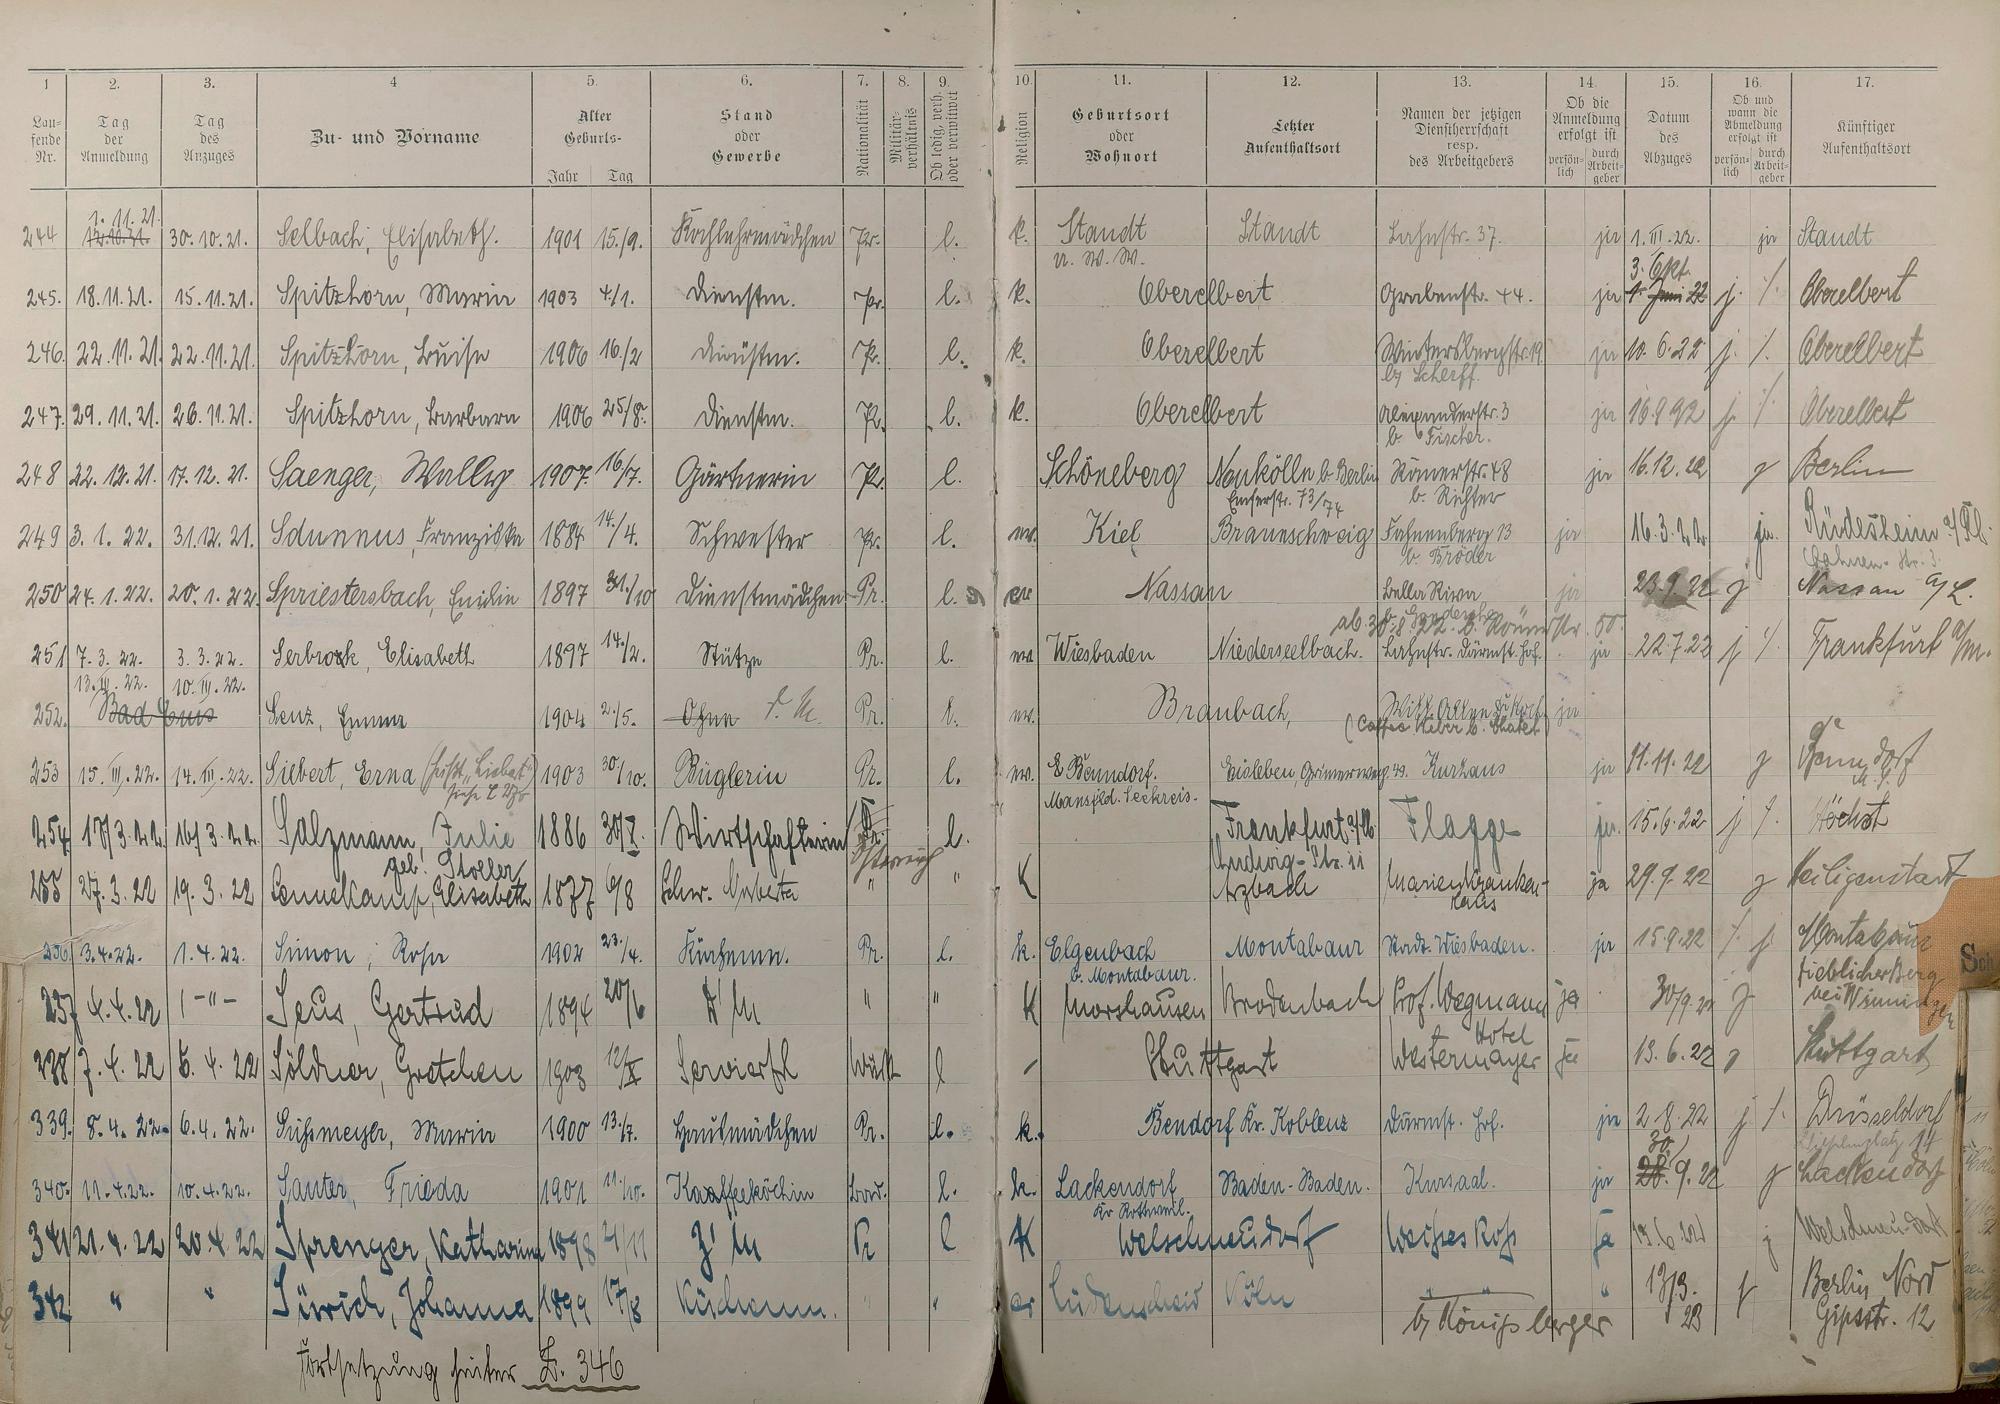 1 2. 3. 4 5. 6. 7. 8. 9. 10. 11. 12. 13. 14. 15. 16. 17.
Laufende Nr. Tag der Anmeldung Tag des Anzuges Zu- und Vorname Alter Geburts- Jahr Tag Stand oder Gewerbe Nationalität Militärverhältnis Ob ledig, verh. oder verwitwet Religion Geburtsort oder Wohnort Letzter Aufenthaltsort Namen der jetzigen Dienstherrschaft resp. des Arbeitgebers Ob die Anmeldung erfolgt ist persönlich durch Arbeitgeber Datum des Abzuges Ob und wann die Abmeldung erfolgt ist persönlich durch Arbeitgeber Künftiger Aufenthaltsort
1. 11. 21.
244 12.10.21. 30.10.21. Selbach, Elisabeth. 1901 15./9. Kochlehrmädchen Pr. l. k. Standt Standt Lahnstr. 37. ja 1.III.22. ja Standt
u. W. W. 3. Okt.
245. 18.11.21. 15.11.21. Spitzhorn, Maria 1903 4/1. Dienstm. Pr. l. k. Oberelbert Grabenstr. 44. ja 1. Juni 22 j. /. Oberelbert
246. 22.11.21. 22.11.21. Spitzhorn, Luise 1906 16./2 Dienstm. Pr. l. k. Oberelbert Wintersbergstr. 19. ja 10.6.22 j. /. Oberelbert
b/ Scherff.
247. 29.11.21. 26.11.21. Spitzhorn, Barbara 1906 25/8. Dienstm. Pr. l. k. Oberelbert Alexanderstr. 3 ja 16.9.22 j. /. Oberelbert
b Fischer.
248 22.12.21. 17.12.21. Saenger, Wally 1907 16/7. Gärtnerin Pr. l. Schöneberg Neukölln b. Berlin Römerstr. 48 ja 16.12.22 j Berlin
Emserstr. 73/74 b. Richter
249 3.1.22. 31.12.21. Sdunnus, Franziska 1884 14./4. Schwester Pr. l. ev. Kiel Braunschweig Fahnenberg 13 ja 16.3.22. ja. Rüdesheim a/Rh.
b. Bröder
250 24.1.22. 20.1.22. Spriestersbach, Emilie 1897 31./10 Dienstmädchen Pr. l. ev. Nassau Bella Riva, ja 23.9.22 j Nassau a/L.
ab 30.8.22. b. Römerstr. 50.
251 7.3.22. 3.3.22. Serbrock, Elisabeth 1897 14./2. Stütze Pr. l. ev. Wiesbaden Niederseelbach. Lahnstr. Darmst. Hof. ja 22.7.22 j /. Frankfurt a/m.
13.III.22. 10.III.22.
252. Bad Ems Senz, Emma 1904 2./5. Ohne Pr. l. ev. Braubach, ja
253 15.III.22. 14.III.22. Siebert, Erna 1903 30./10. Büglerin Pr. l. ev. Benndorf. Eisleben, 49. Kurhaus ja 11.11.22 j Benndorf
Mansfld. Seekreis.
254 17/3.22 16/3.22. Salzmann, Julie 1886 30/V. Wirtschafterin Pr. l. Frankfurt a/M. Flagge ja. 15.6.22 j /. Höchst
geb. Stoller Österreich Ludwig-Str. 11
255 27.3.22 19.3.22 Sennekamp, Elisabeth 1877 6/8 Schw. Norberta " " K Arzbach Marienkrankenhaus ja 29.9.22 j Heiligenstadt
256 3.4.22. 1.4.22. Simon, Rosa 1902 23./4. Küchenm. Pr. l. k. Elgenbach Montabaur Stadt Wiesbaden. ja 15.9.22 /. j. Montabaur
b. Montabaur.
257 4.4.22 1 -"- Seus, Gertrud 1894 20/6 D'M " " K Morshausen Brodenbach Prof. Wegmann ja 30/9.22 j bei Winningen
Hotel
238 7.4.22 5.4.22 Söldner, Gretchen 1903 12/X Servierfl Würt l - Stuttgart Westermayer ja 13.6.22 j Stuttgart
339. 8.4.22. 6.4.22. Sühsmeyer, Maria 1900 13./7. Hausmädchen Pr. l. k. Bendorf Kr. Koblenz Darmst. Hof. ja 2.8.22 j /. Düsseldorf
30./
340. 11.4.22. 10.4.22. Sauter, Frieda 1901 11./10. Kaffeeköchin l. k. Lackendorf Baden-Baden. Kursaal. ja 28.9.22 j Lackendorf
Kr Rottweil.
341 21.4.22 20.4.22 Sprenger, Katharina 1898 21/11 Z'M Pr l K Welschneudorf Weißes Roß ja 19.6.22 j Welschneudorf
342 " " Sürich, Johanna 1899 17/8 Küchenm. " " ev Lüdenscheid Köln " " " 13/3. 23 j Berlin Nord
b/ Königsberger Gipsstr. 12
Fortsetzung hinter Z. 346
Sch